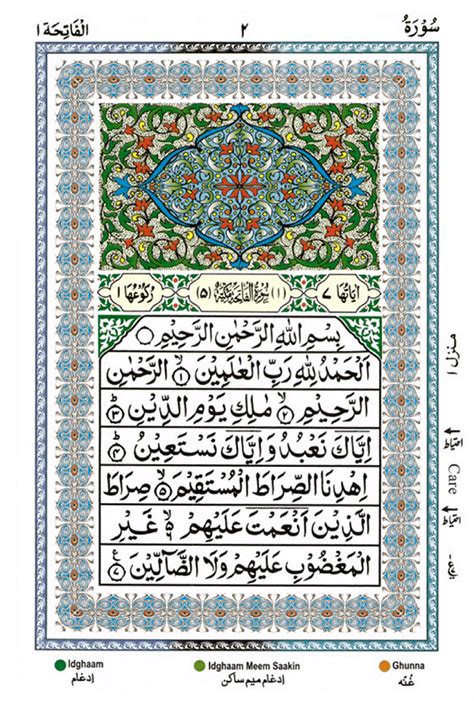 سُوْرَةُ ٢ اَلْفَاتِحَة ١
اٰیَاتُهَا ٧ (١) سُوْرَةُ الْفَاتِحَةِ مَكِّيَّةٌ (٥) رُكُوْعُهَا ١
بِسْمِ اللّٰهِ الرَّحْمٰنِ الرَّحِيْمِ
اَلْحَمْدُ لِلّٰهِ رَبِّ الْعٰلَمِيْنَ ١ الرَّحْمٰنِ
الرَّحِيْمِ ٢ مٰلِكِ يَوْمِ الدِّيْنِ ٣
اِيَّاكَ نَعْبُدُ وَاِيَّاكَ نَسْتَعِيْنُ ٤
اِهْدِنَا الصِّرَاطَ الْمُسْتَقِيْمَ ٥ صِرَاطَ
الَّذِيْنَ اَنْعَمْتَ عَلَيْهِمْ ٦ غَيْرِ
الْمَغْضُوْبِ عَلَيْهِمْ وَلَا الضَّآلِّيْنَ ٧ ع
منزل ١
احتیاط
Care
احتیاط
Idghaam Idghaam Meem Saakin Ghunna
اِدغام اِدغام میم ساکن غُنّه